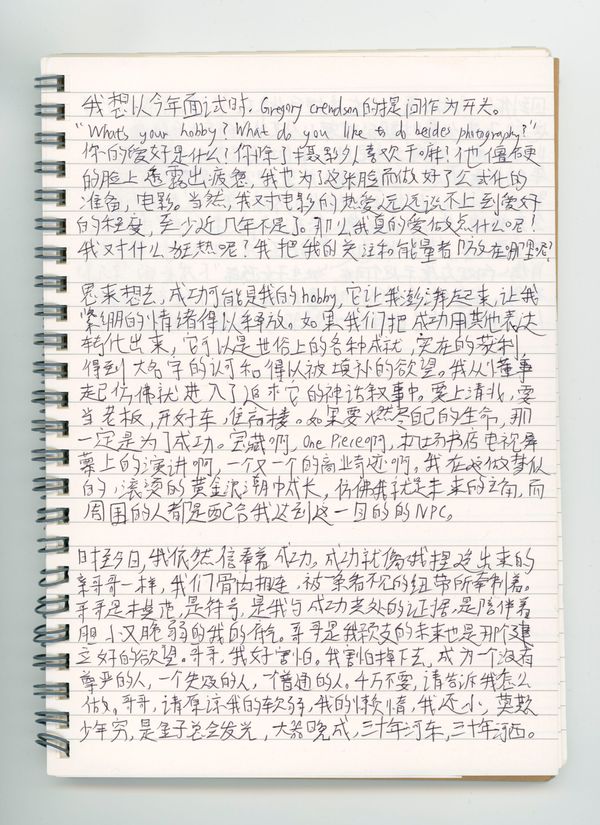 我想以今年面试时, Gregory crewdson的提问作为开头。
"What's your hobby? What do you like to do besides photography?"
你的爱好是什么?你除了摄影外喜欢干嘛?他僵硬
的脸上透露出疲惫,我也为了这张脸而做好了公式化的
准备,电影。当然,我对电影的热爱远远谈不上到爱好
的程度,至少近几年不是了。那么我真的爱做点什么呢?
我对什么狂热呢?我把我的关注和能量都放在哪里呢?
思来想去,成功可能是我的hobby,它让我澎湃起来,让我
紧绷的情绪得以释放。如果我们把成功用其他表达
转化出来,它可以是世俗上的各种成就,实在的获利
得到大名字的认可和得以被填补的欲望。我从懂事
起仿佛就进入了追求它的神话叙事中。要上清北,要
当老板,开好车,住高楼。如果要燃尽自己的生命,那
一定是为了成功。宝藏啊,One Piece啊,机场书店电视屏
幕上的演讲啊,一个又一个的商业奇迹啊,我在这做梦似
的,滚烫的黄金浪潮中成长,仿佛我就是未来的主角,而
周围的人都是配合我达到这一目的的NPC。
时至今日,我依然信奉着成功。成功就像我捏造出来的
亲哥哥一样,我们骨肉相连,被一条看不见的纽带所牵制着。
哥哥是模范,是符号,是我与成功共处的证据,是陪伴着
胆小又脆弱的我的 。哥哥是我预支的未来也是那个建
立好的欲望。哥哥,我好害怕。我害怕掉下去,成为一个没有
尊严的人,一个失败的人,一个普通的人。千万不要,请告诉我怎么
做。哥哥,请原谅我的软弱,我的懒惰,我还小,莫欺
少年穷,是金子总会发光,大器晚成,三十年河东,三十年河西。